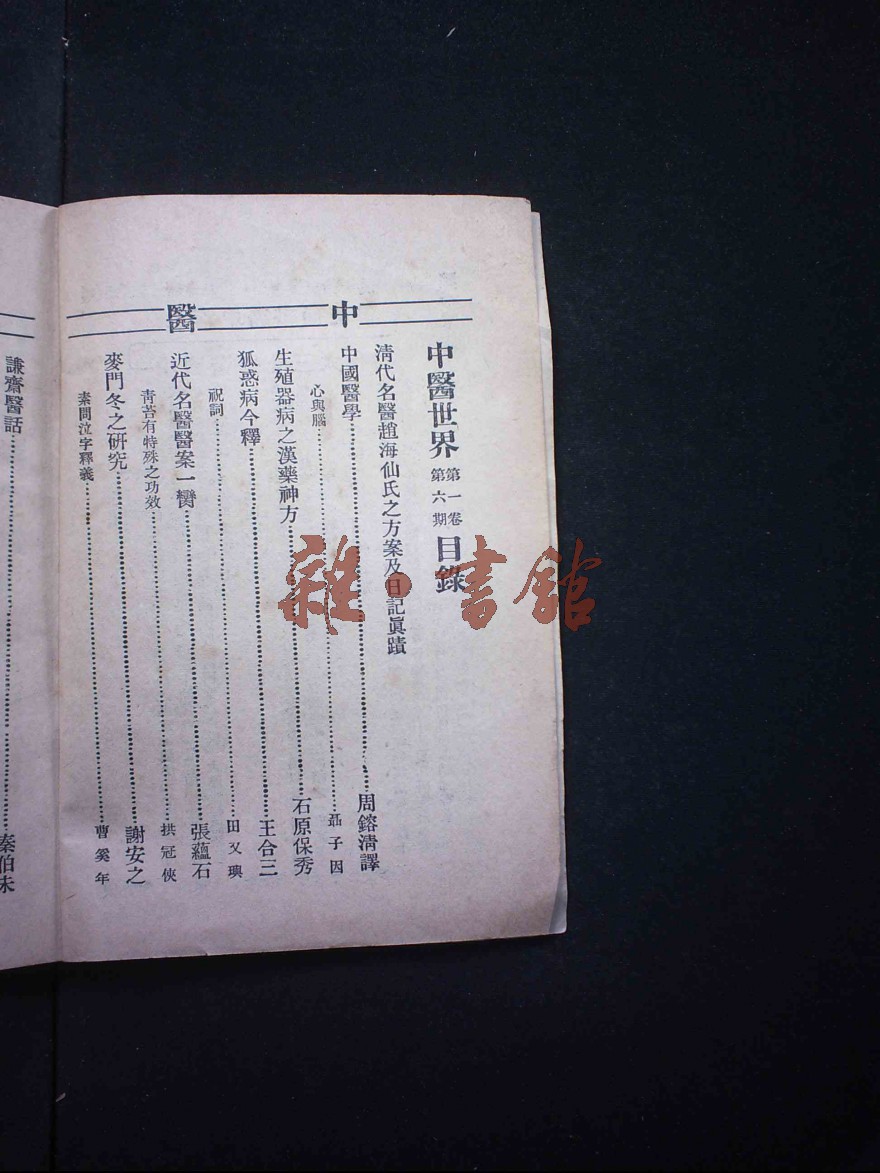 中
醫
中醫世界 第一卷 第六期 目錄
清代名醫趙海仙氏之方案及日記眞蹟
中國醫學 周鎔清譯
心與腦 聶子因
生殖器病之漢藥神方 石原保秀
狐惑病今釋 王合三
祝詞 田乂璵
近代名醫醫案一臠 張蘊石
青苔有特殊之功效 拱冠俠
麥門冬之研究 謝安之
素問泣字釋義 曹奚年
謙齋醫話 秦伯未
雜·書館